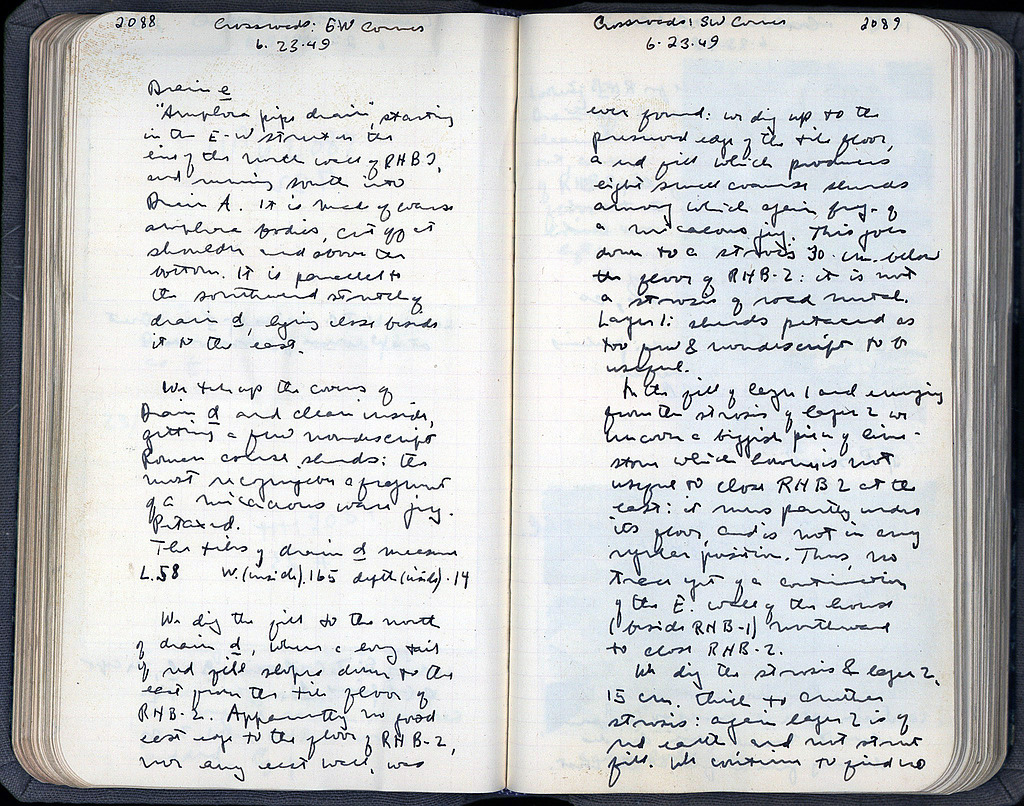 2088 Crossroads: SW Corner
6. 23. 49
Drain e
"Amphora pipe drain", starting
in the E-W street in the
line of the north wall of RHB 2,
and running south into
Drain A. It is made of coarse
amphora bodies, cut off at
shoulder and above the
bottom. It is parallel to
the southward stretch of
drain d, lying close beside
it to the east.
We take up the covers of
Drain d and clean inside,
getting a few nondescript
Roman coarse sherds: the
most recognizable a fragment
of a micaceous ware jug.
Petaxed.
The tiles of drain d measure
L. .58 W. (inside) .165 depth (inside) .14
We dig the fill to the north
of drain d, where a long tail
of red fill slopes down to the
east from the tile floor of
RHB-2. Apparently no good
east edge to the floor of RHB-2,
nor any east wall, was
Crossroads: SW Corner 2089
6. 23. 49
ever found: we dig up to the
preserved edge of the tile floor,
a red fill which produces
eight small coarse sherds
among which again frag. of
a micaceous jug. This goes
down to a strosis 30 cm. below
the floor of RHB-2: it is not
a strosis of road metal.
Layer 1: sherds petaxed as
too few & nondescript to be
useful.
In the fill of layer 1 and emerging
from the strosis of layer 2 we
uncover a biggish piece of lime-
stone which however is not
useful to close RHB 2 at the
east: it runs partly under
its floor, and is not in any
regular position. Thus, no
trace yet of a continuation
of the E. wall of the house
(beside RHB-1) northward
to close RHB-2.
We dig the strosis & layer 2,
15 cm. thick to another
strosis: again layer 2 is of
red earth and not street
fill. We continue to find no